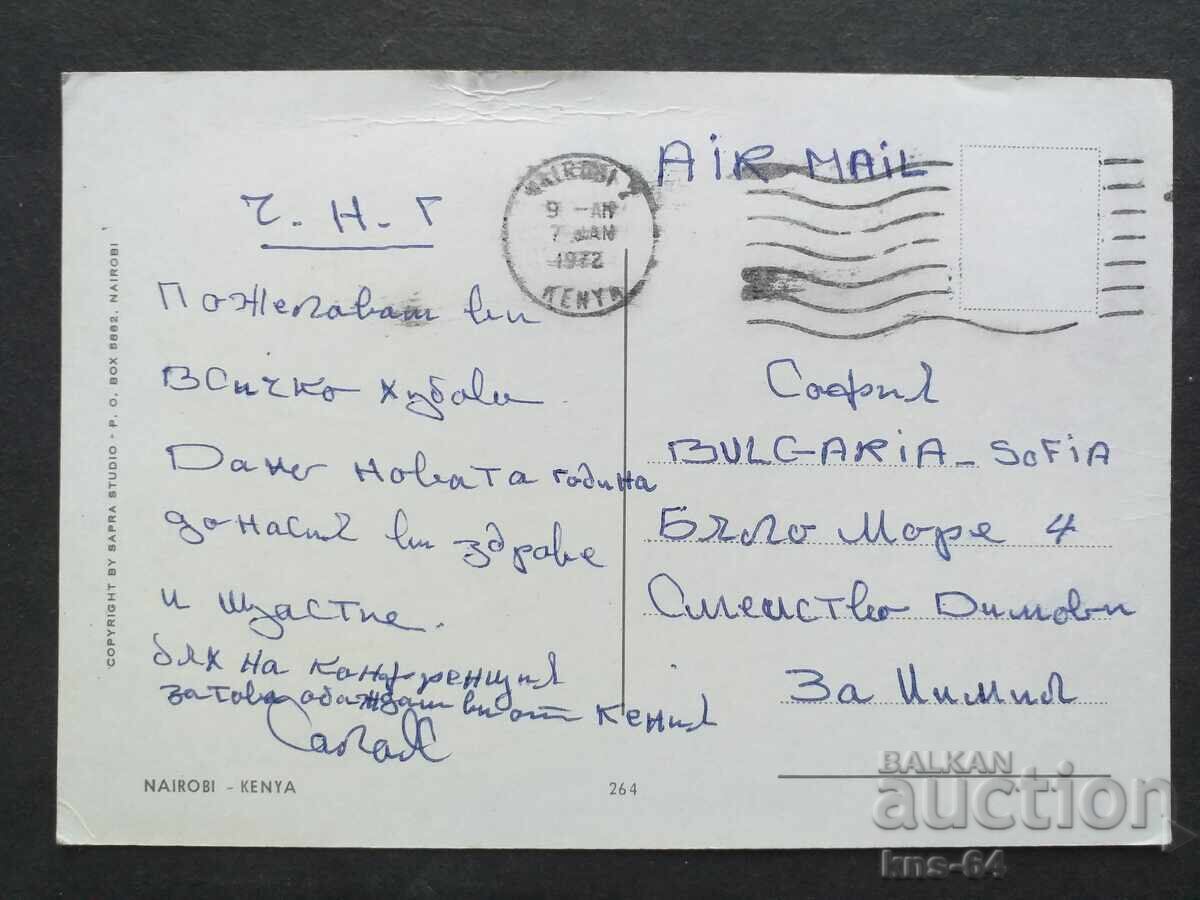 AiR MAIL
NAIROBI
9 - AM
7 JAN
1972
KENYA
Ч. Н. Г
Пожелавам ви
всичко хубаво
Дано новата година
донася ви здраве
и щастие.
бях на конференция
затова обаждам ви от Кения
София
BULGARiA - SoFiA
Бяло Море 4
Семейство Димови
За
NAIROBI - KENYA
264
COPYRIGHT BY SAPRA STUDIO - P. O. BOX 5882, NAIROBI
BALKAN
auction
kns-64